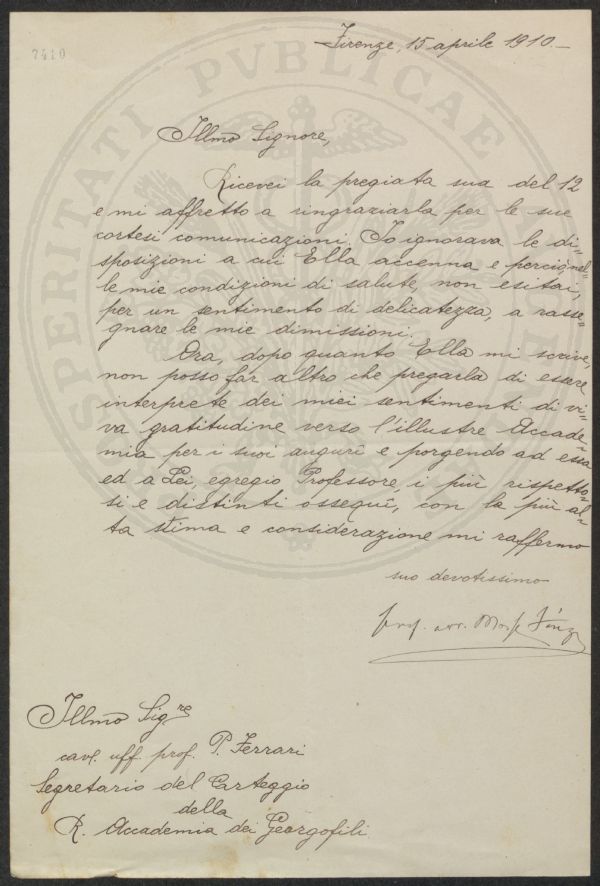 7410
Firenze, 15 aprile 1910.—
PROSPERITATI PVBLICAE
Illmo Signore,
Ricevei la pregiata sua del 12
e mi affretto a ringraziarla per le sue
cortesi comunicazioni. Io ignorava le di=
sposizioni a cui Ella accenna e perciò, nel=
le mie condizioni di salute, non esitai,
per un sentimento di delicatezza, a rasse=
gnare le mie dimissioni.
Ora, dopo quanto Ella mi scrive,
non posso far altro che pregarla di essere
interprete dei miei sentimenti di vi=
va gratitudine verso l'illustre Accade=
mia per i suoi augurî e porgendo ad essa
ed a Lei, egregio Professore, i più rispetto=
si e distinti ossequî, con la più al=
ta stima e considerazione mi raffermo
suo devotissimo
prof. avv.
Illmo Sigre
cavl. uff. prof. P. Ferrari
Segretario del Carteggio
della
R. Accademia dei Georgofili